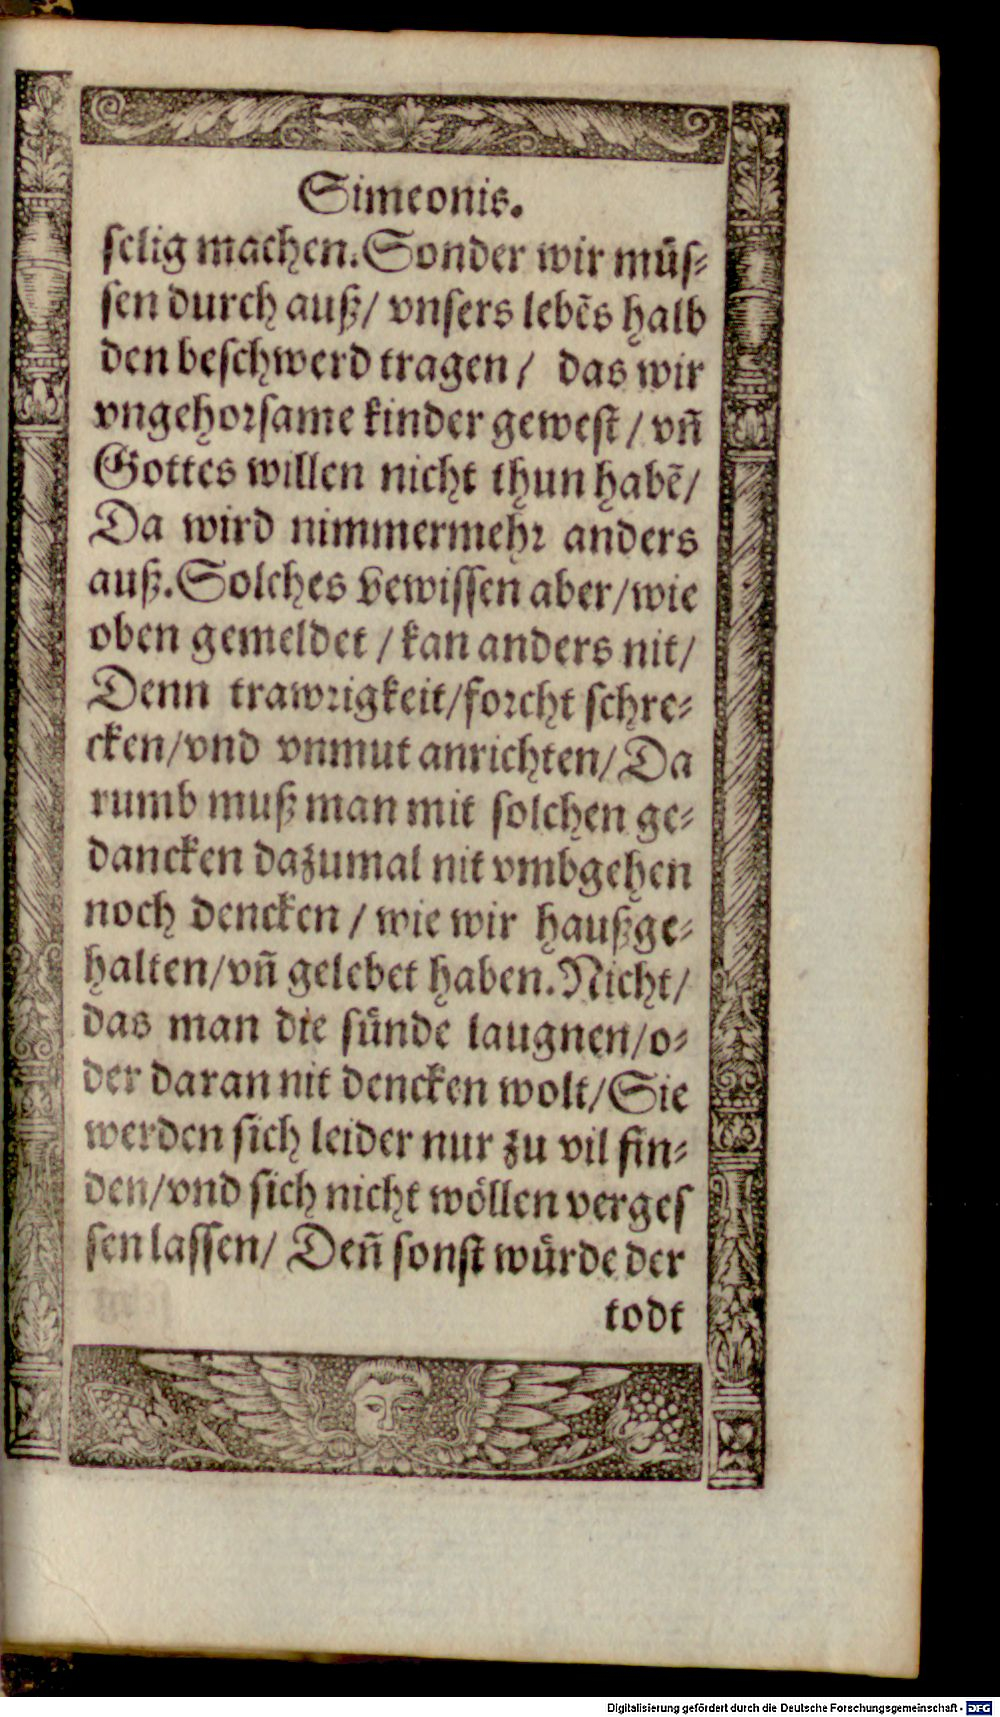 Simeonis.
selig machen. Sonder wir müs-
sen durch auß/ vnsers lebẽs halb
den beschwerd tragen/ das wir
vngehorsame kinder gewest/ vñ
Gottes willen nicht thun habẽ/
Da wird nimmermehr anders
auß. Solches bewissen aber/ wie
oben gemeldet/ kan anders nit/
Denn trawrigkeit/ forcht schre-
cken/ vnd vnmut anrichten/ Da
rumb muß man mit solchen ge-
dancken dazumal nit vmbgehen
noch dencken/ wie wir haußge-
halten/ vñ gelebet haben. Nicht/
das man die sünde laugnen/ o-
der daran nit dencken wolt/ Sie
werden sich leider nur zu vil fin-
den/ vnd sich nicht wöllen verges
sen lassen/ Deñ sonst würde der
todt
Digitalisierung gefördert durch die Deutsche Forschungsgemeinschaft - DFG